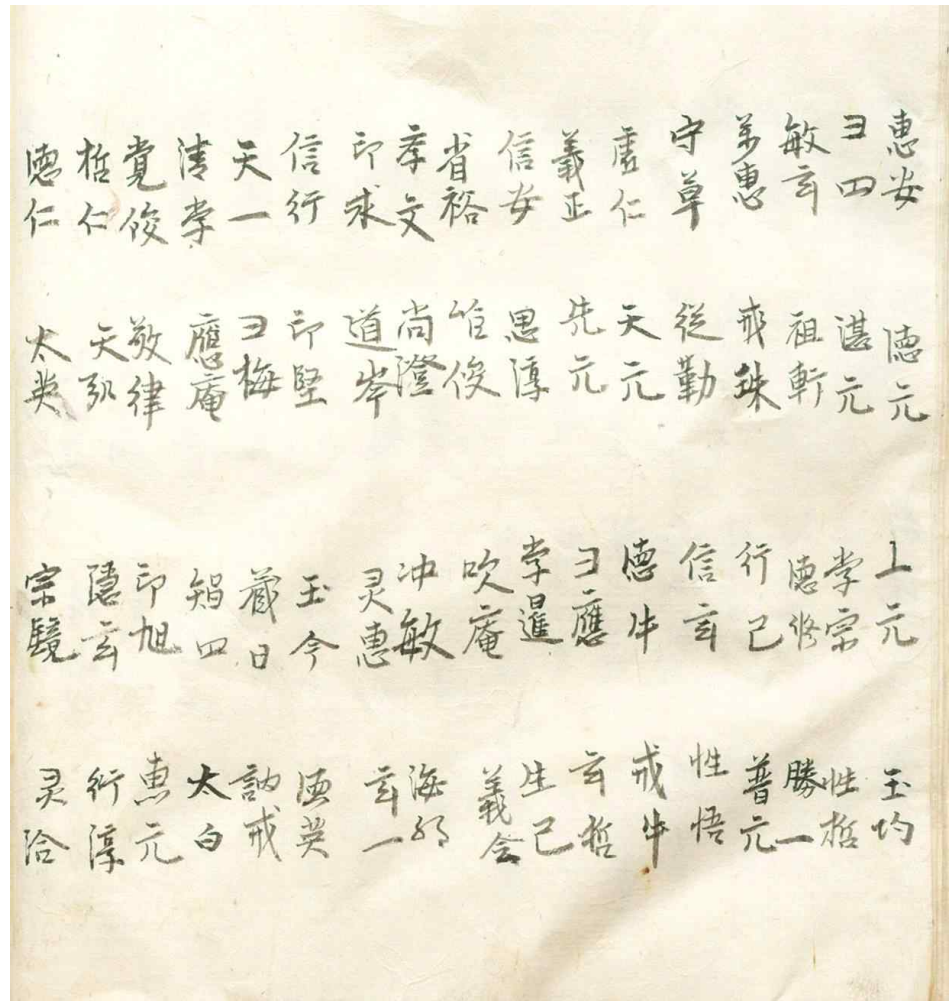 惠安
彐四
敏玄
萬惠
守草
虛仁
義正
信安
省裕
孝文
印求
信行
天一
清学
覚俊
哲仁
徳仁
徳元
諶元
祖軒
戒珠
従勤
天元
先元
思淳
唯俊
尚澄
道岑
印堅
彐梅
應庵
敬律
天
太英
上元
学宗
徳修
行己
信玄
徳牛
彐應
学暹
吹庵
冲敏
灵惠
玉今
蔵日
智四
印旭
隱玄
宗鏡
玉均
性哲
勝一
普元
性悟
戒牛
玄哲
生己
義念
海
玄一
徳英
訥戒
太白
惠元
衍淳
灵洽